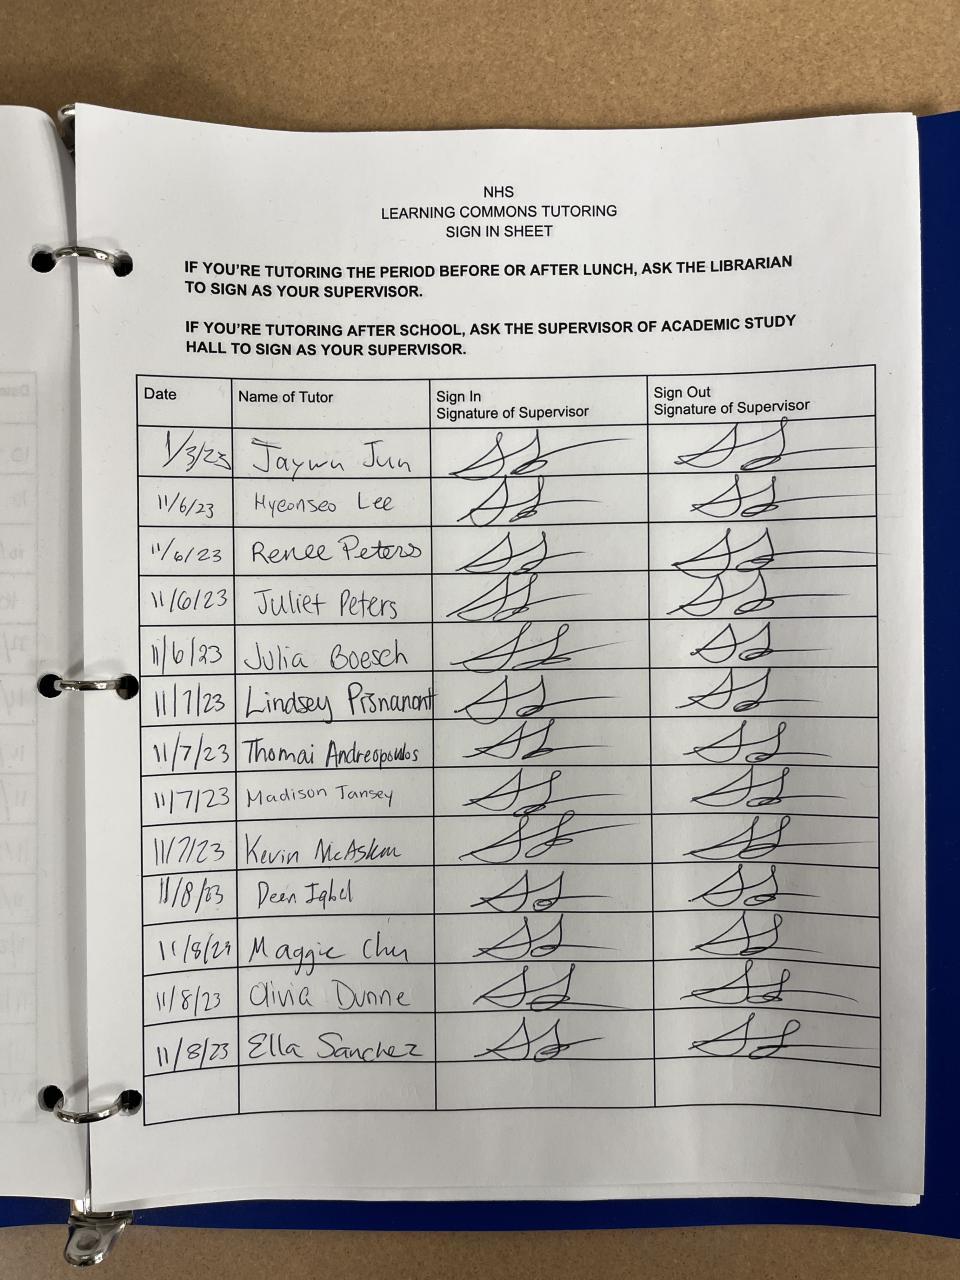 NHS
LEARNING COMMONS TUTORING
SIGN IN SHEET
IF YOU'RE TUTORING THE PERIOD BEFORE OR AFTER LUNCH, ASK THE LIBRARIAN
TO SIGN AS YOUR SUPERVISOR.
IF YOU'RE TUTORING AFTER SCHOOL, ASK THE SUPERVISOR OF ACADEMIC STUDY
HALL TO SIGN AS YOUR SUPERVISOR.
Date Name of Tutor Sign In Signature of Supervisor Sign Out Signature of Supervisor
1/3/23 Jaywn Jun
11/6/23 Hyeonseo Lee
11/6/23 Renee Peters
11/6/23 Juliet Peters
11/6/23 Julia Boesch
11/7/23 Lindsey Pisnanont
11/7/23 Thomai Andreopoulos
11/7/23 Madison Tansey
11/7/23 Kevin
11/8/23 Deen Iqbal
Maggie
11/8/23 Olivia Dunne
11/8/23 Ella Sanchez